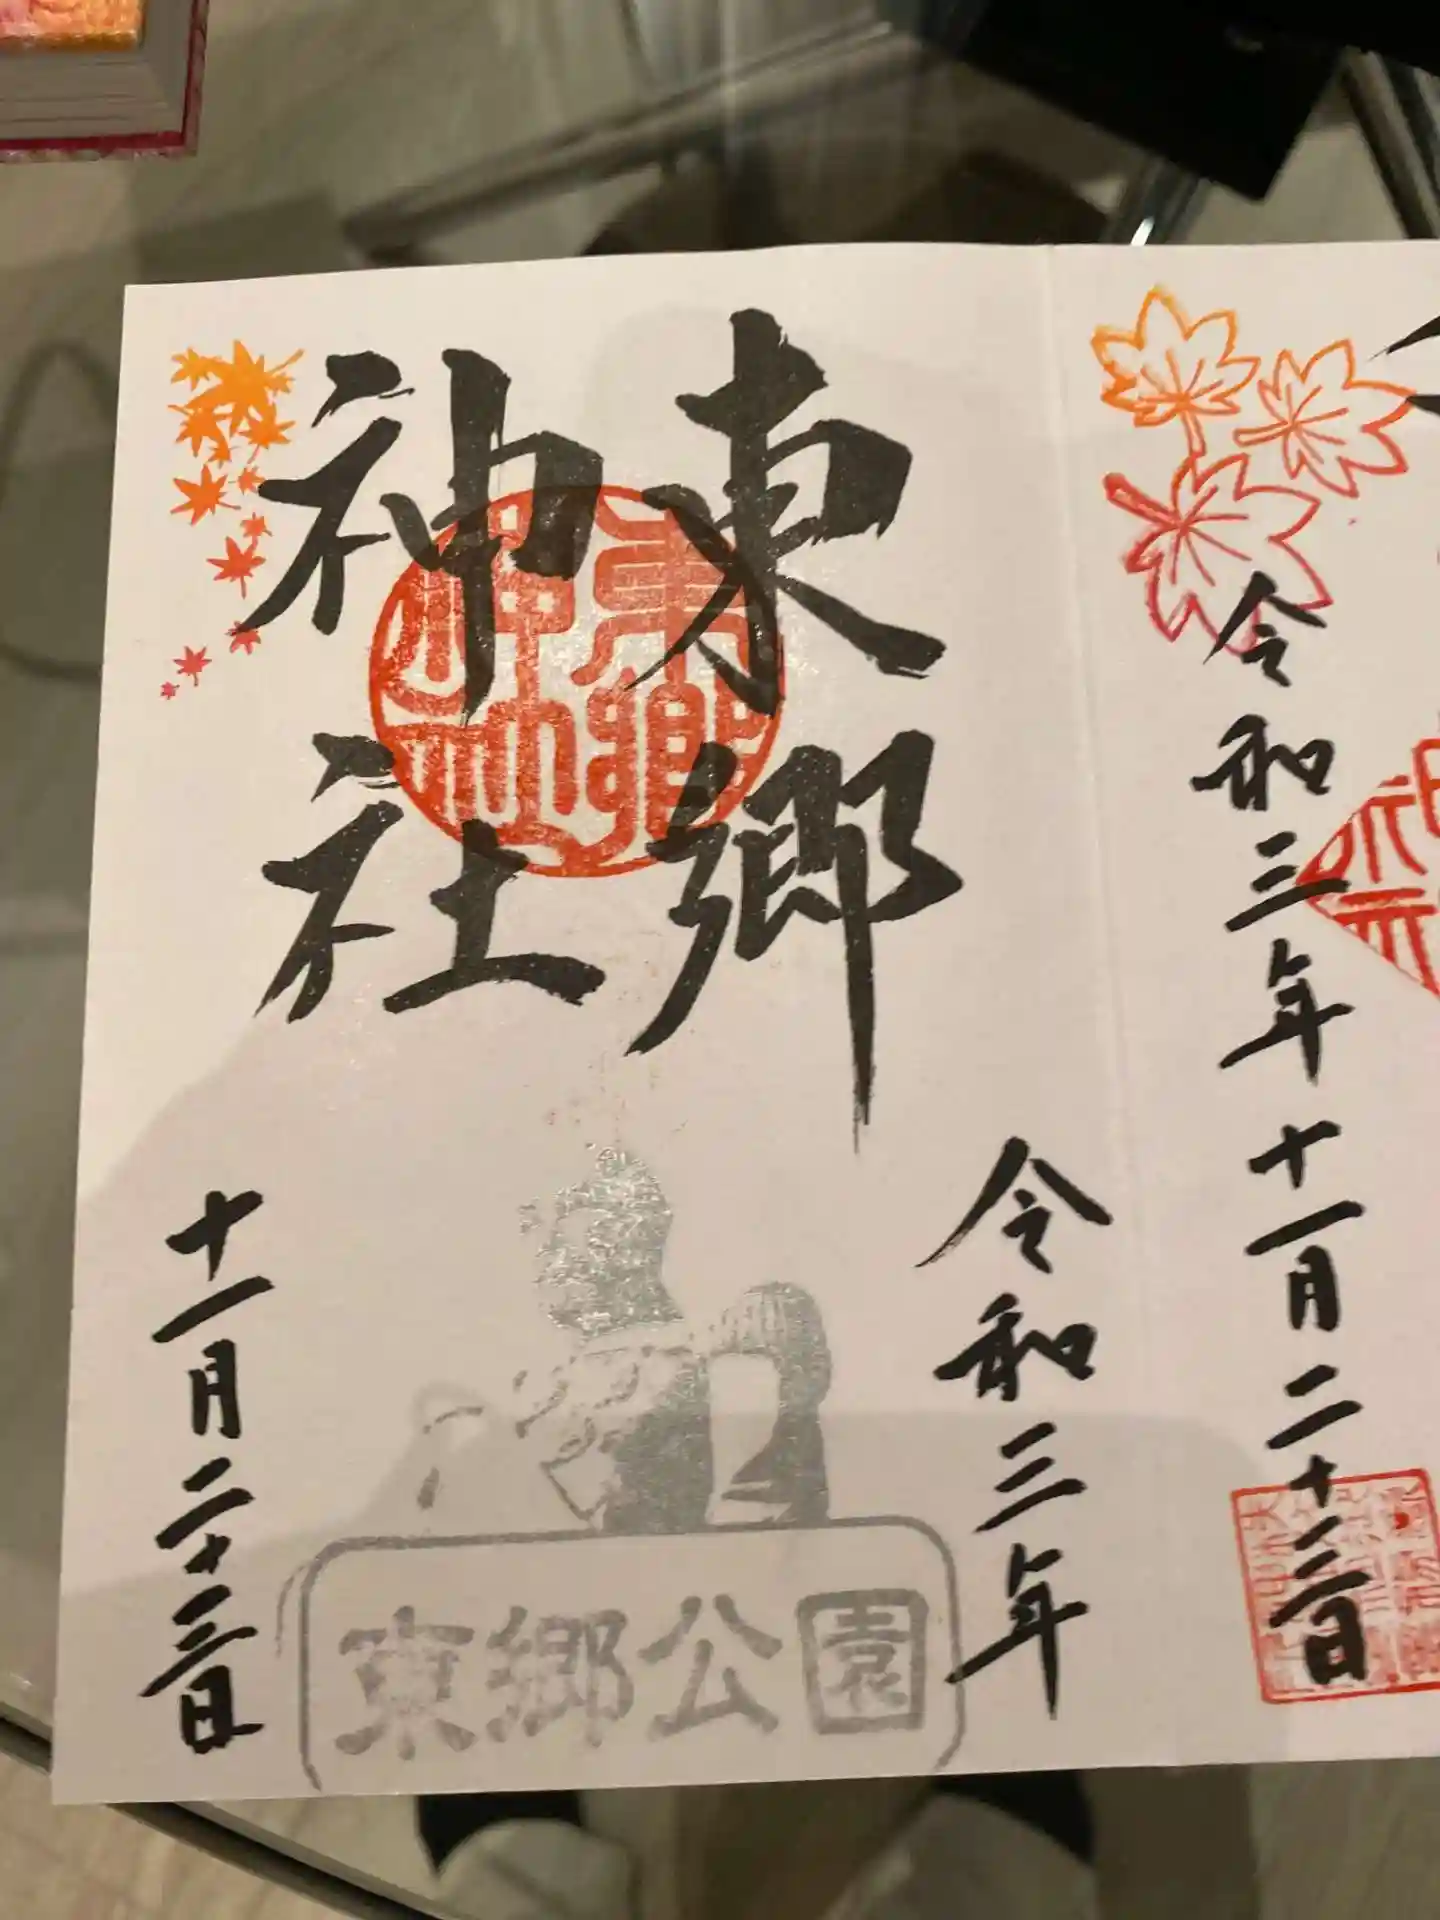 令和三年十一月二十三日
東郷
神社
東郷神社
令和三年
十一月二十三日
東郷公園